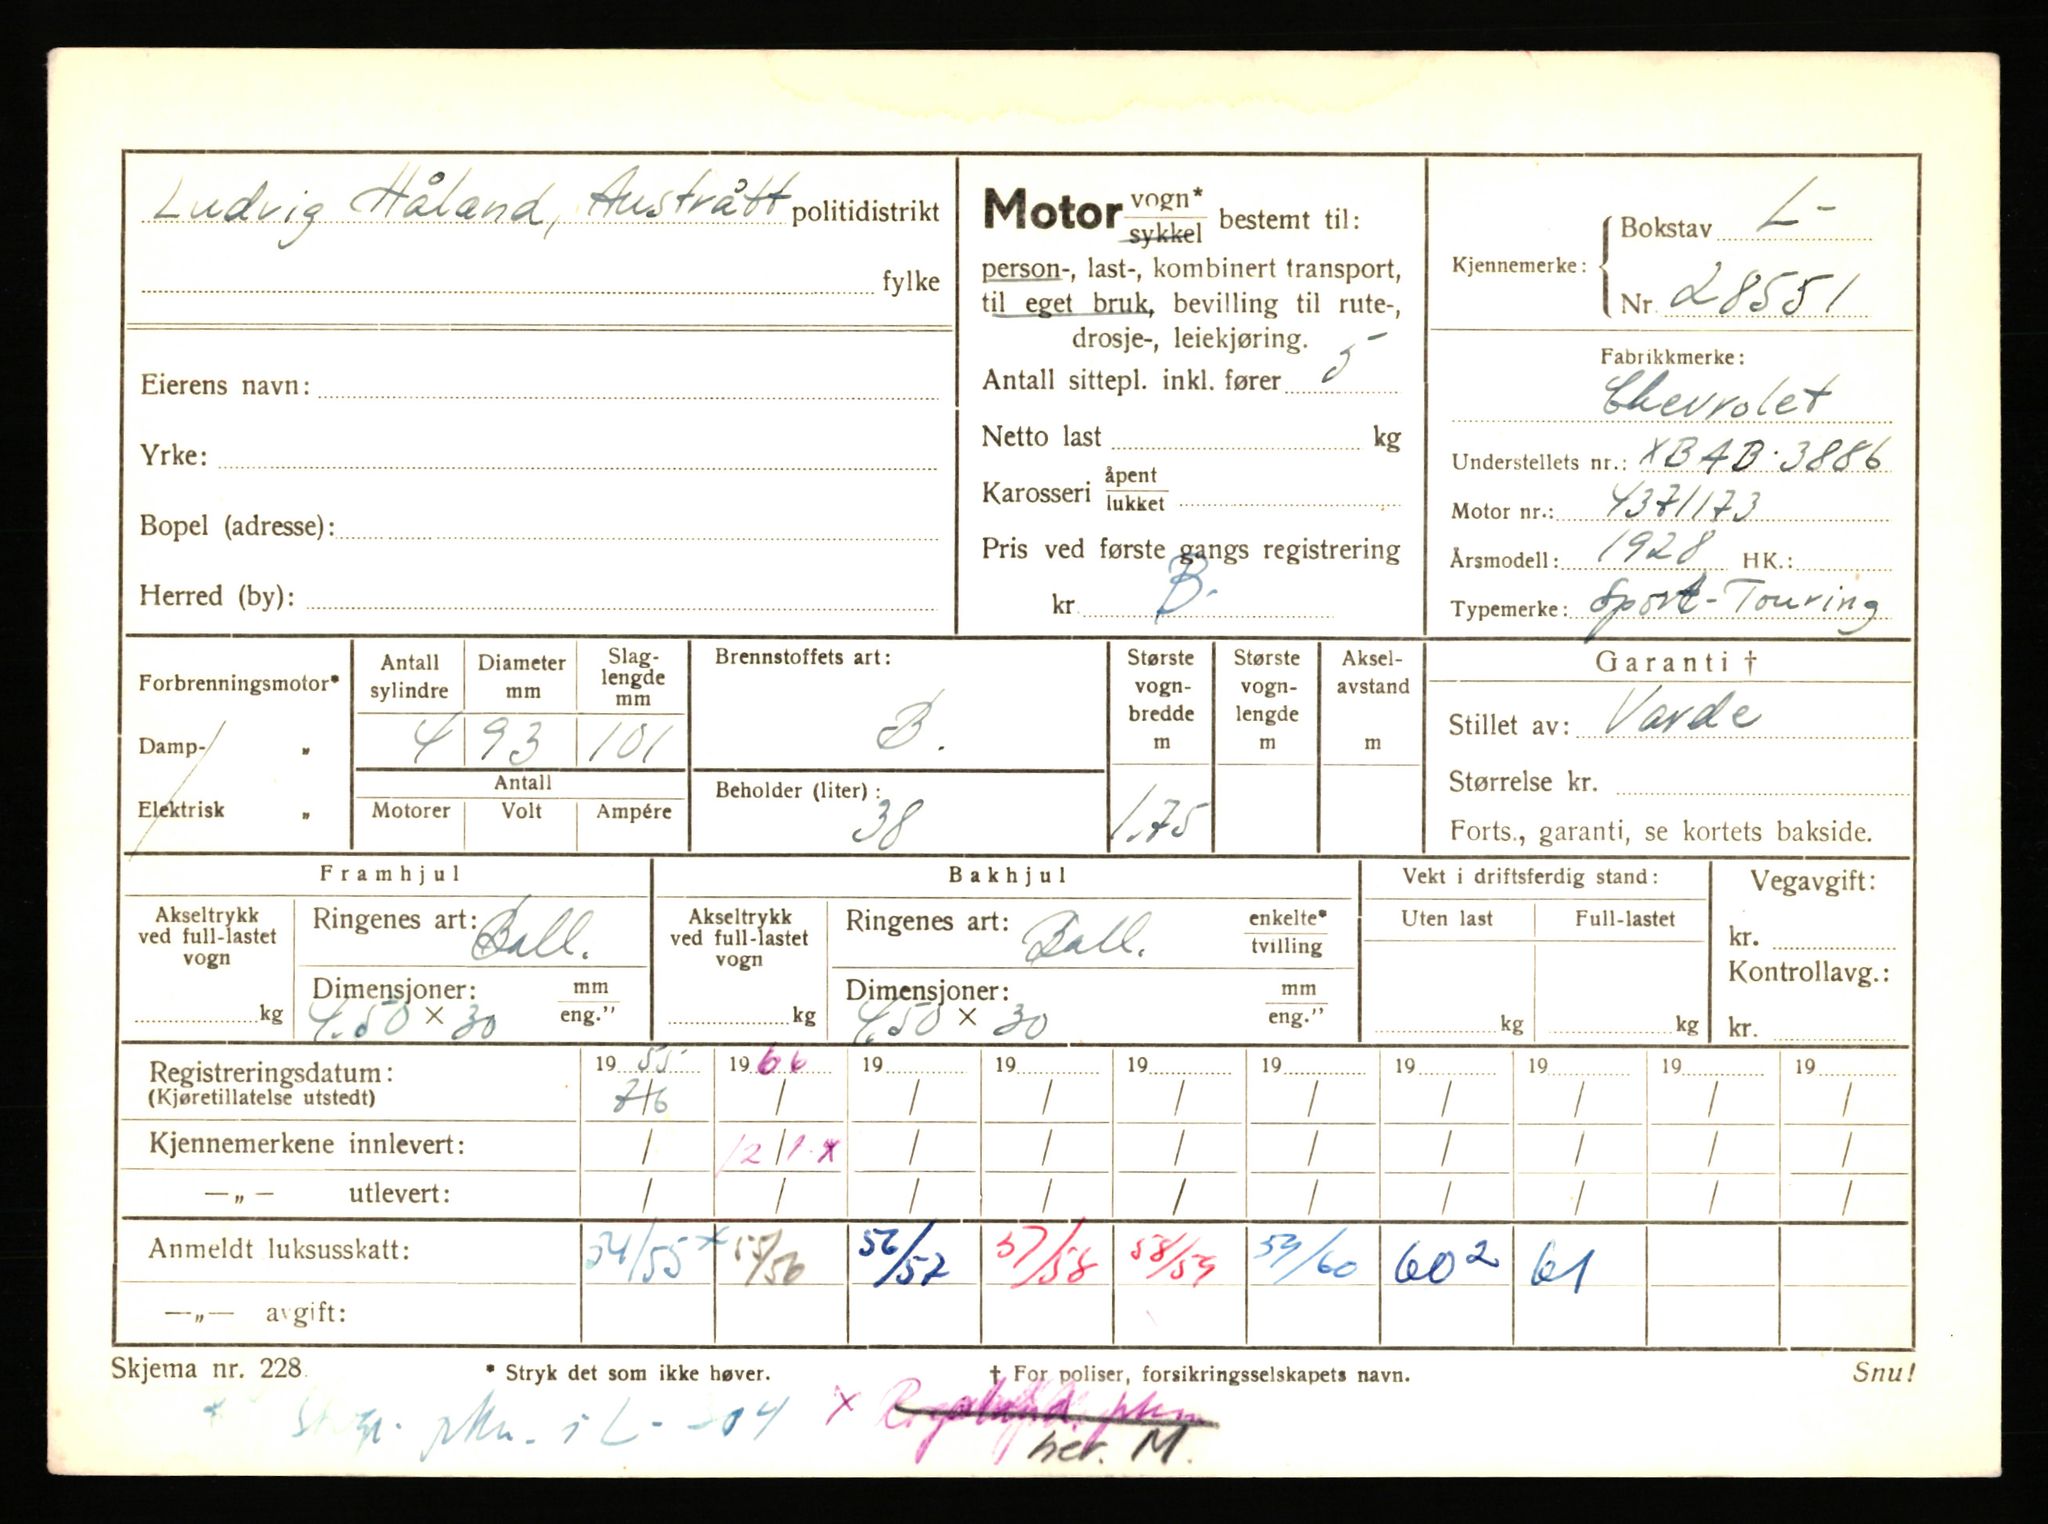 Ludvig Håland, Austrått politidistrikt
fylke
Eierens navn:
Yrke:
Bopel (adresse):
Herred (by):
Motor vogn* sykkel bestemt til:
person-, last-, kombinert transport,
til eget bruk, bevilling til rute-,
drosje-, leiekjøring.
Antall sittepl. inkl. fører 5
Netto last kg
Karosseri åpent lukket
Pris ved første gangs registrering
kr. B.
Kjennemerke: Bokstav L-
Nr. 28551
Fabrikkmerke:
Chevrolet
Understellets nr.: XBAB.3886
Motor nr.: 4371173
Årsmodell: 1928 HK.:
Typemerke: Sport-Touring
Forbrenningsmotor*
Damp- „
Elektrisk „
Antall sylindre 4
Diameter mm 93
Slaglengde mm 101
Antall
Motorer Volt Ampére
Brennstoffets art:
B.
Beholder (liter):
38
Største vognbredde m 1.75
Største vognlengde m
Akselavstand m
Garanti †
Stillet av: Varde
Størrelse kr.
Forts., garanti, se kortets bakside.
Framhjul
Akseltrykk ved full-lastet vogn
kg
Ringenes art: Ball.
Dimensjoner: mm eng."
4.50 × 30
Bakhjul
Akseltrykk ved full-lastet vogn
kg
Ringenes art: Ball. enkelte* tvilling
Dimensjoner: mm eng."
4.50 × 30
Vekt i driftsferdig stand:
Uten last Full-lastet
kg kg
Vegavgift:
kr.
Kontrollavg.:
kr.
Registreringsdatum: 1955 1966 19 19 19 19 19 19 19 19
(Kjøretillatelse utstedt) 7/6 / / / / / / / / /
Kjennemerkene innlevert: / 12/1 x / / / / / / / /
—„— utlevert: / / / / / / / / / /
Anmeldt luksusskatt: 54/55 x 55/56 56/57 57/58 58/59 59/60 60 2 61
—„— avgift:
Skjema nr. 228. * Stryk det som ikke høver. † For poliser, forsikringsselskapets navn. Snu!
pkn. i L- x
her. M.